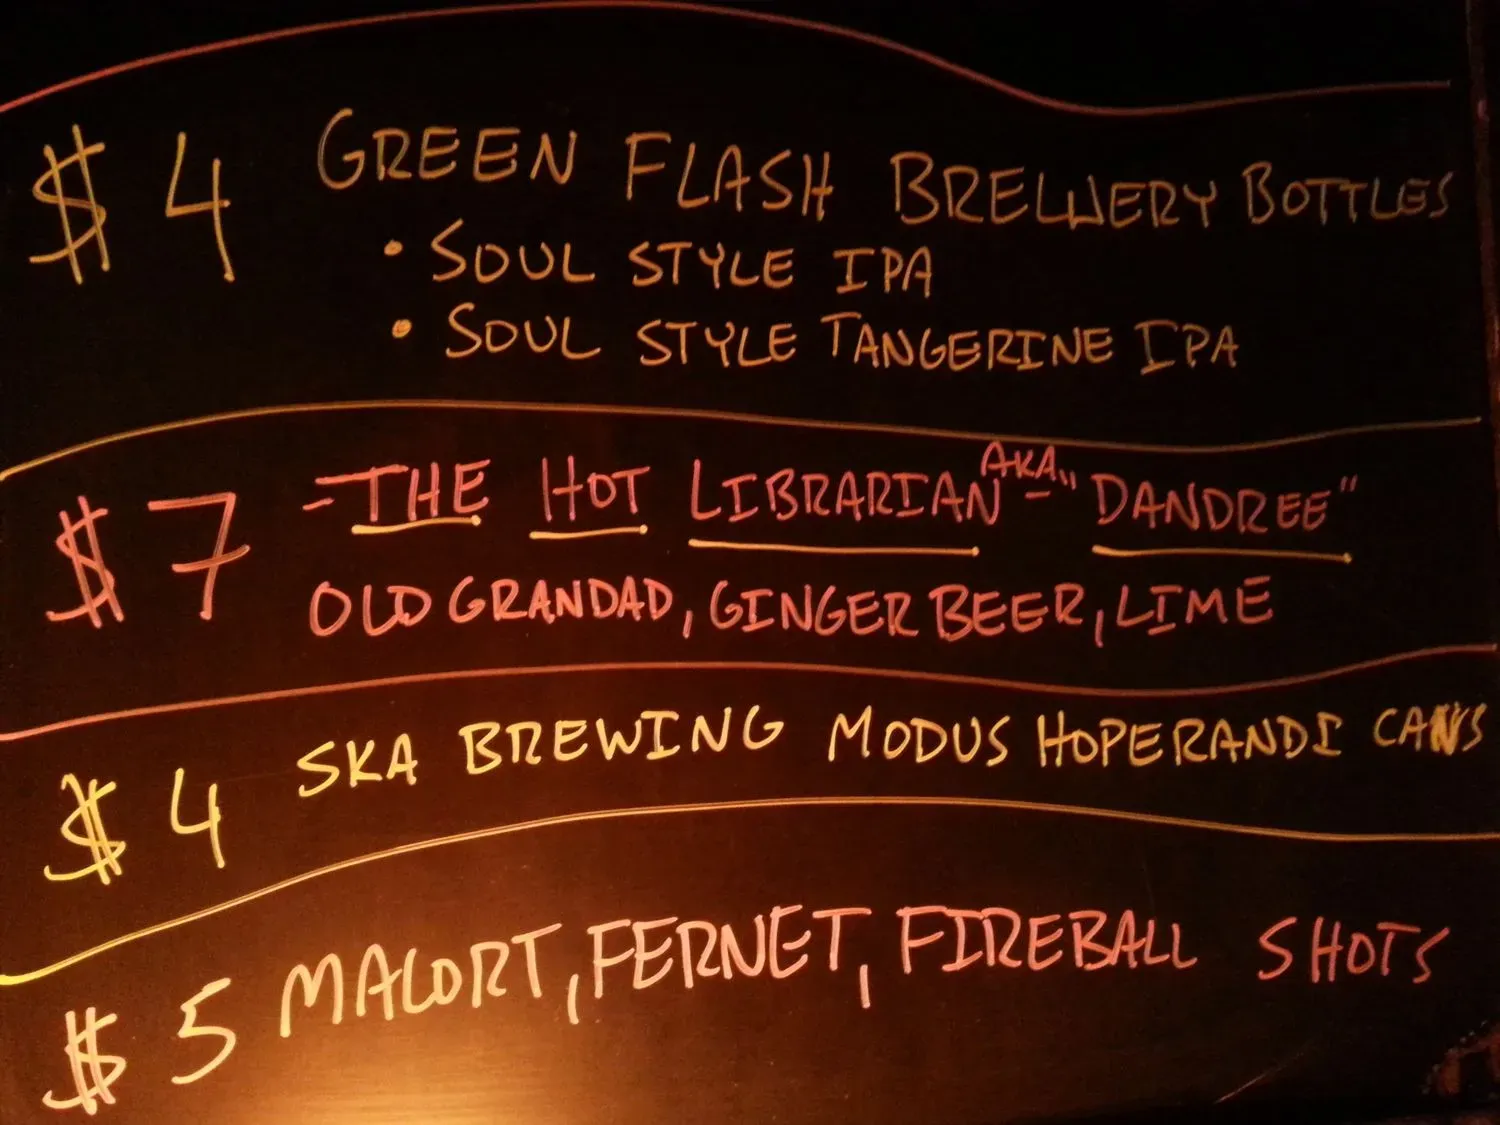 $4 GREEN FLASH BREWERY BOTTLES
• SOUL STYLE IPA
• SOUL STYLE TANGERINE IPA
$7 - THE HOT LIBRARIAN AKA - "DANDREE"
OLD GRANDAD, GINGER BEER, LIME
$4 SKA BREWING MODUS HOPERANDI CANS
$5 MALORT, FERNET, FIREBALL SHOTS